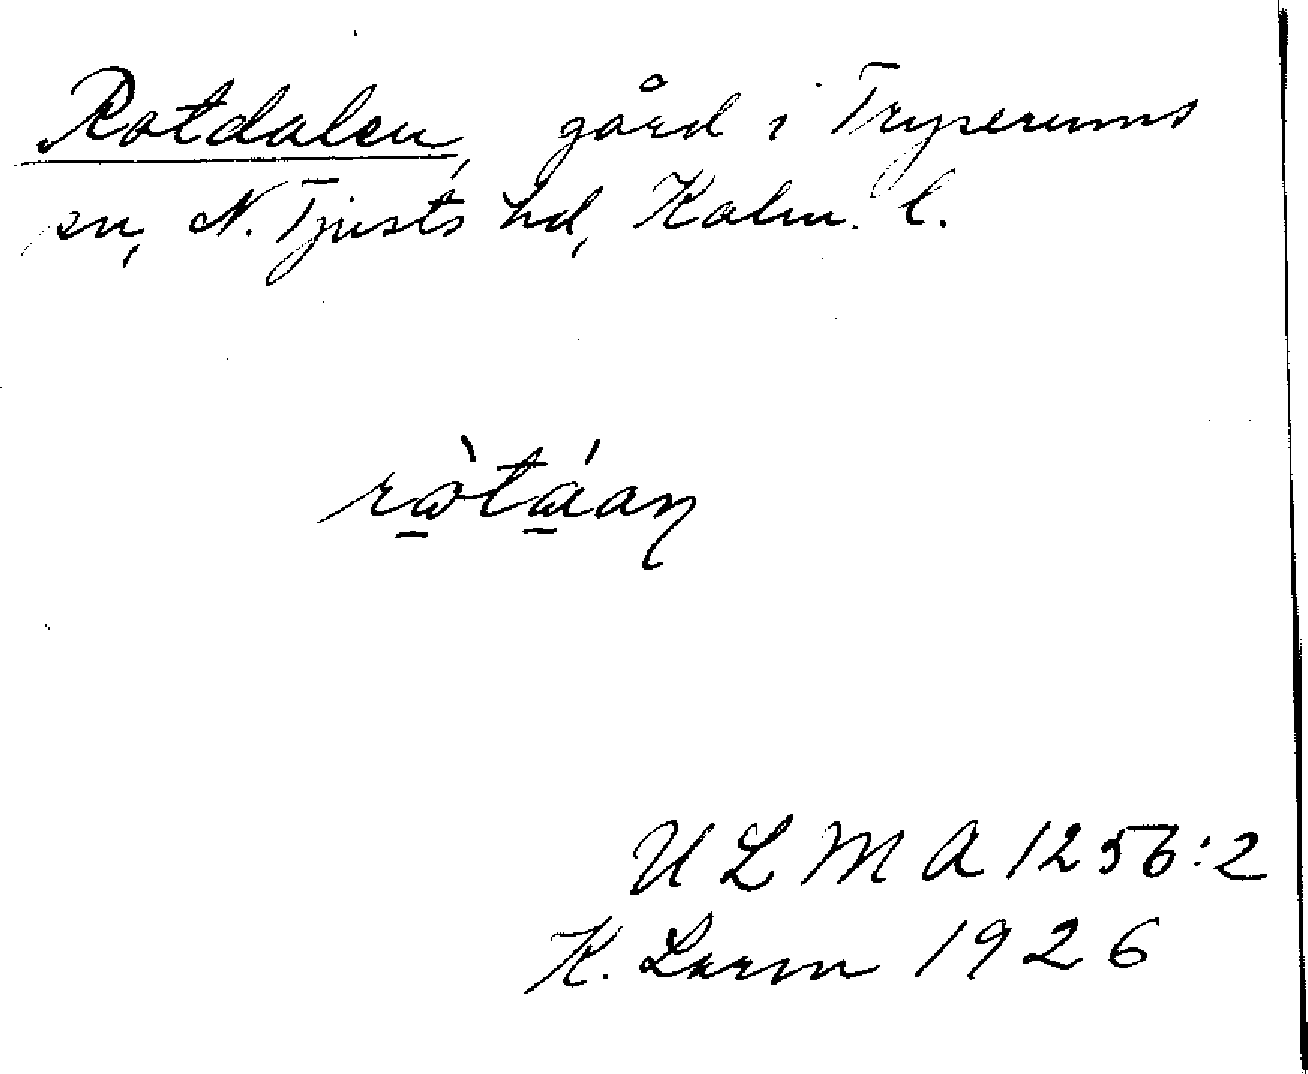 Rotdalen, gård i Tryserums
sn, N. Tjusts hd, Kalm. l.
rὼ̱tά̱an
U L M A 1256:2
K. Lorm 1926